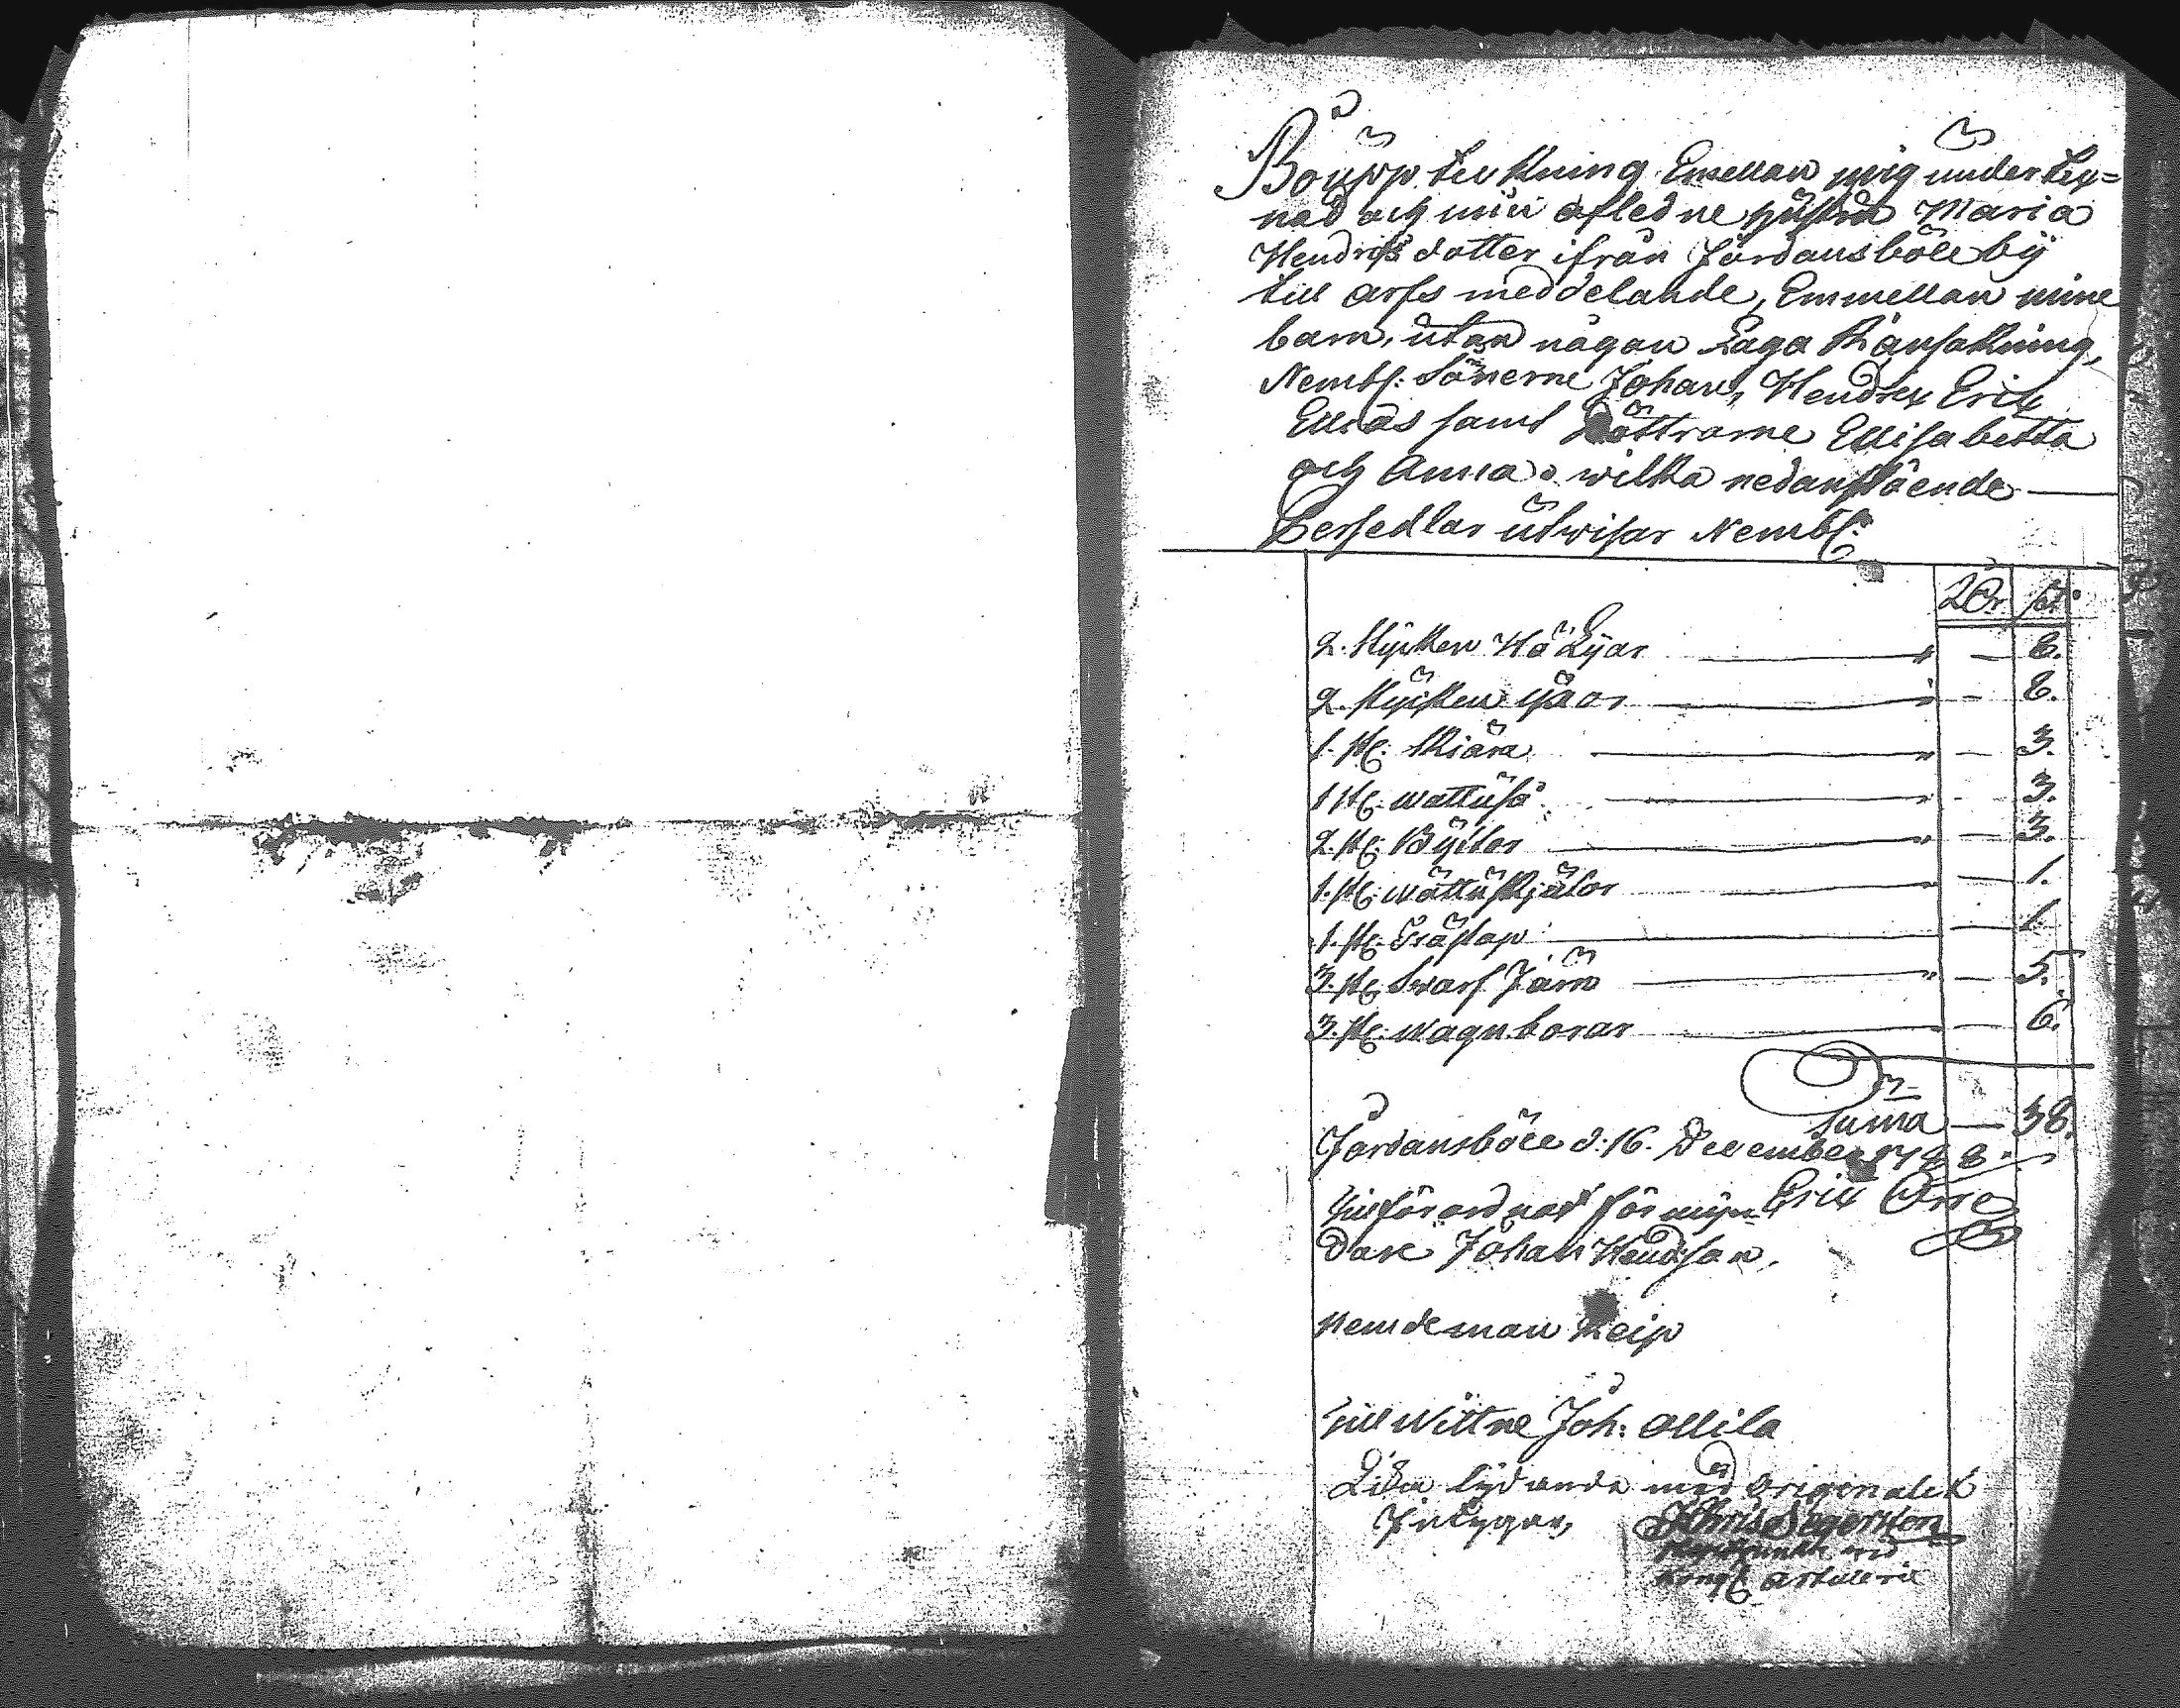 Boupp teckning Emellan mig under tex=
nad och min afledne hustru Maria
Hendrs dotter ifrån Jordansböle bÿ
till arfs meddelande, Emmellan mine
barn, utan någon Laga Ransakning,
Nembl: Sönerne Johan, Hendrex Erix
Ellias samt Döttrarne Ellisabetta
och Anna. wilka nedanstående
Persedlar utwisar Nembl:
Dr st:
2. stÿcken Hö Lÿar — 8.
2. stÿcken — 8.
1. st: skiära — 3.
1 st: wattuså — 3.
2. st: Bÿttor — 3.
1. st: wattu skjälor — 1.
1. st: — 1.
3. st: Swarf Järn — 5.
3. st: wagn borar — 6.
Suma — 38.
Jordansböle d: 16. December 1788.
Erix Orre
till förordnat förmÿn=
dare Johan Hendsson,
Nemdeman Reip
till Wittne Joh: Ollila
Lika lÿdande med originalet
Intygar,
Kongl: Artillerie